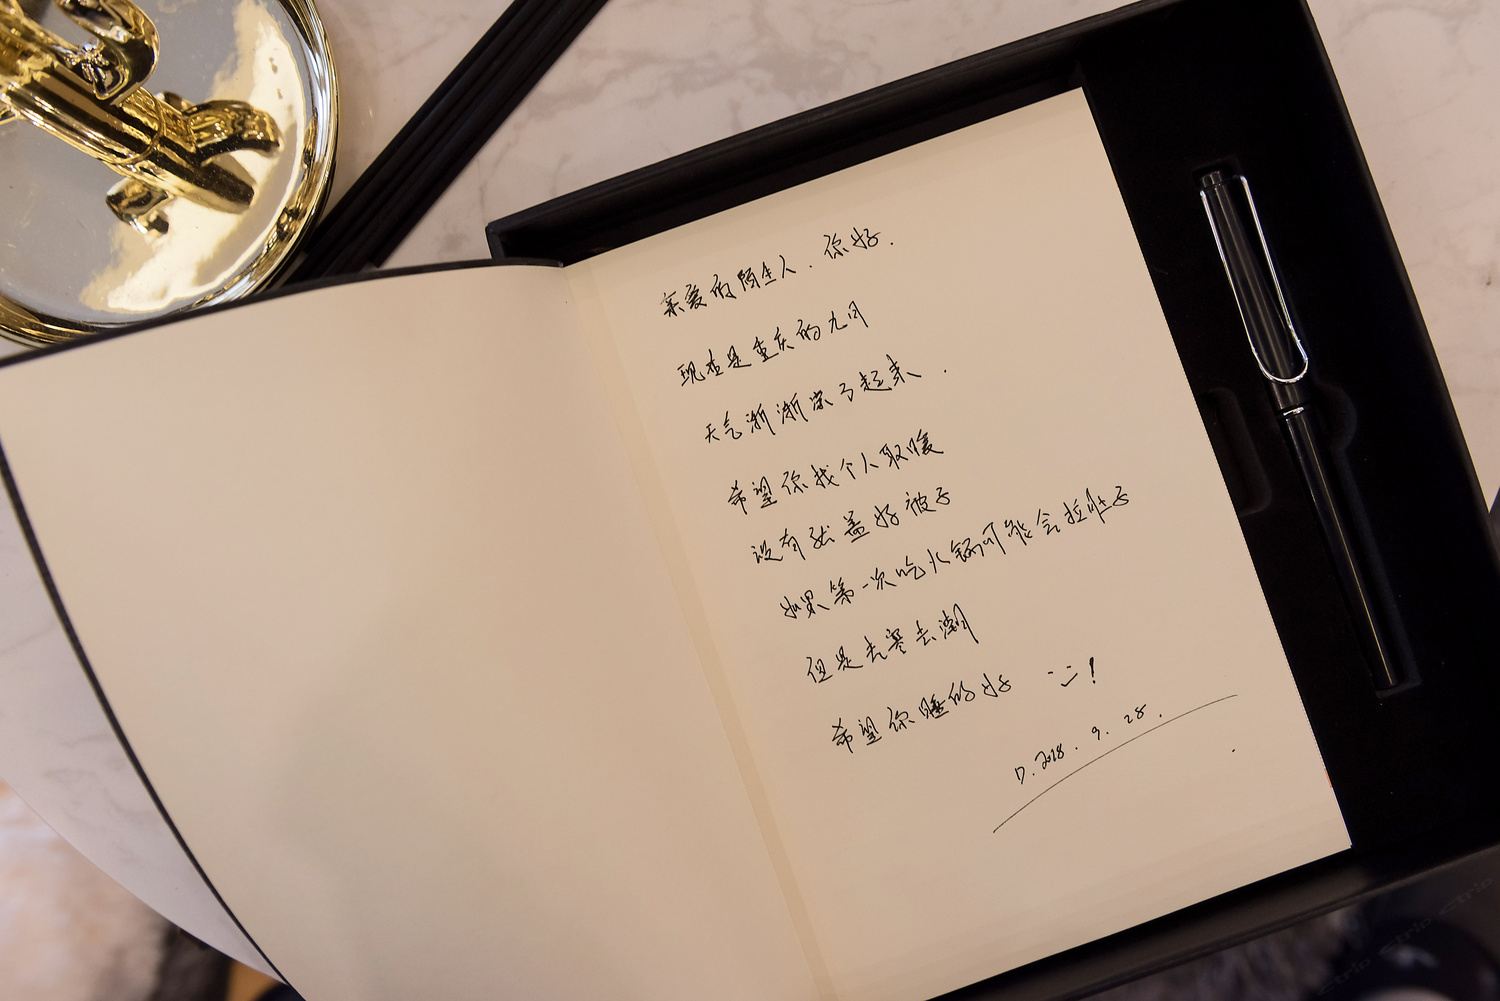 亲爱的陌生人．你好．
现在是重庆的九月
天气渐渐凉了起来．
希望你找个人取暖
没有就盖好被子
如果第一次吃火锅可能会拉肚子
但是去寒去潮
希望你睡的好 :)！
D. 2018. 9. 28.
Ctrip Ctrip Ctrip